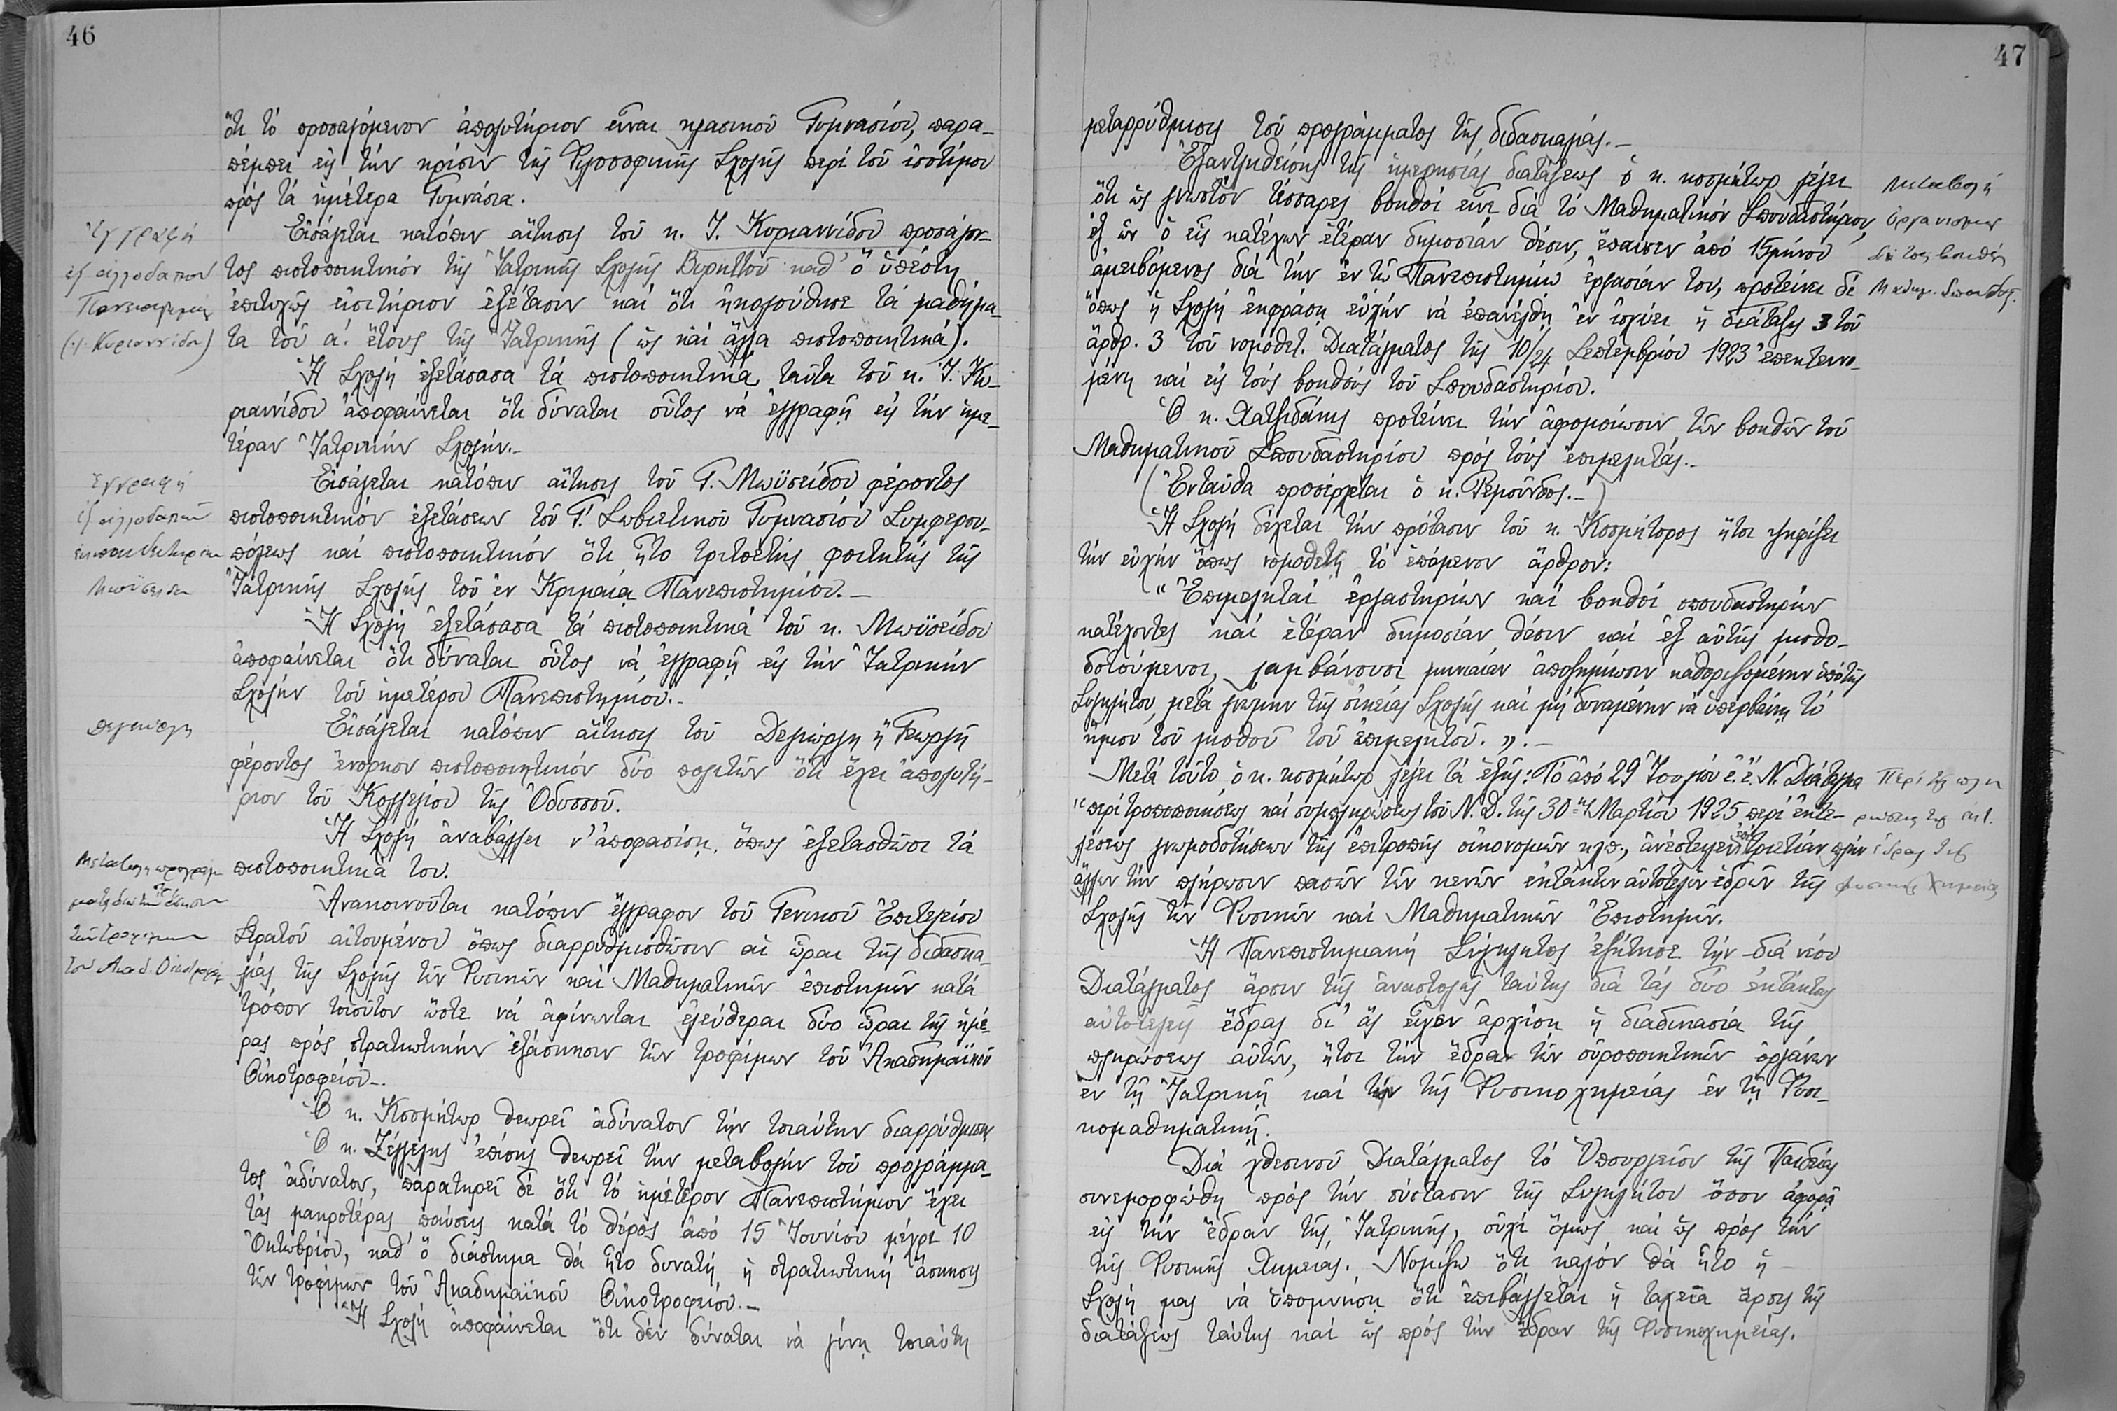 46
ὅτι τὸ προσαγόμενον ἀπολυτήριον εἶναι κλασικοῦ Γυμνασίου, παρα-
πέμπει εἰς τὴν κρίσιν τῆς Φιλοσοφικῆς Σχολῆς περὶ τοῦ ἰσοτίμου
πρὸς τὰ ἡμέτερα Γυμνάσια.
Ἐγγραφὴ
ἐξ ἀλλοδαποῦ
Πανεπιστημίου
(Ἰ. Κυριαννίδου)
Εἰσάγεται κατόπιν αἴτησις τοῦ κ. Ἰ. Κυριαννίδου προσάγον-
τος πιστοποιητικὸν τῆς Ἰατρικῆς Σχολῆς Βηρυττοῦ καθ' ὃ ὑπέστη
ἐπιτυχῶς εἰσιτήριον ἐξέτασιν καὶ ὅτι ἠκολούθησε τὰ μαθήμα-
τα τοῦ α΄. ἔτους τῆς Ἰατρικῆς (ὡς καὶ ἄλλα πιστοποιητικά).
Ἡ Σχολὴ ἐξετάσασα τὰ πιστοποιητικὰ ταῦτα τοῦ κ. Ἰ. Κυ-
ριαννίδου ἀποφαίνεται ὅτι δύναται οὗτος νὰ ἐγγραφῇ εἰς τὴν ἡμε-
τέραν Ἰατρικὴν Σχολήν.-
Ἐγγραφὴ
ἐξ ἀλλοδαποῦ
Μωϋσείδου
Εἰσάγεται κατόπιν αἴτησις τοῦ Γ. Μωϋσείδου φέροντος
πιστοποιητικὸν ἐξετάσεων τοῦ Γ΄ Σοβιετικοῦ Γυμνασίου Συμφερου-
πόλεως καὶ πιστοποιητικὸν ὅτι ἦτο τριτοετὴς φοιτητὴς τῆς
Ἰατρικῆς Σχολῆς τοῦ ἐν Κριμαίᾳ Πανεπιστημίου.-
Ἡ Σχολὴ ἐξετάσασα τὰ πιστοποιητικὰ τοῦ κ. Μωϋσείδου
ἀποφαίνεται ὅτι δύναται οὗτος νὰ ἐγγραφῇ εἰς τὴν Ἰατρικὴν
Σχολὴν τοῦ ἡμετέρου Πανεπιστημίου.-
Εἰσάγεται κατόπιν αἴτησις τοῦ Δεληώργη ἢ Γεωργῆ
φέροντος ἔνορκον πιστοποιητικὸν δύο πολιτῶν ὅτι ἔχει ἀπολυτή-
ριον τοῦ Κολλεγίου τῆς Ὀδυσσοῦ.
Ἡ Σχολὴ ἀναβάλλει ν' ἀποφασίσῃ, ὅπως ἐξετασθῶσι τὰ
πιστοποιητικά του.
Μεταβολὴ προγράμ-
ματος διὰ τὴν ἄσκησιν
τῶν τροφίμων
τοῦ Ἀκαδ. Οἰκοτροφείου
Ἀνακοινοῦται κατόπιν ἔγγραφον τοῦ Γενικοῦ Ἐπιτελείου
Στρατοῦ αἰτουμένου ὅπως διαρρυθμισθῶσιν αἱ ὧραι τῆς διδασκα-
λίας τῆς Σχολῆς τῶν Φυσικῶν καὶ Μαθηματικῶν ἐπιστημῶν κατὰ
τρόπον τοιοῦτον ὥστε νὰ ἀφίνωνται ἐλεύθεραι δύο ὧραι τῆς ἡμέ-
ρας πρὸς στρατιωτικὴν ἐξάσκησιν τῶν τροφίμων τοῦ Ἀκαδημαϊκοῦ
Οἰκοτροφείου.-
Ὁ κ. Κοσμήτωρ θεωρεῖ ἀδύνατον τὴν τοιαύτην διαρρύθμισιν
Ὁ κ. Ζέγγελης ἐπίσης θεωρεῖ τὴν μεταβολὴν τοῦ προγράμμα-
τος ἀδύνατον, παρατηρεῖ δὲ ὅτι τὸ ἡμέτερον Πανεπιστήμιον ἔχει
τὰς μακροτέρας παύσεις κατὰ τὸ θέρος ἀπὸ 15 Ἰουνίου μέχρι 10
Ὀκτωβρίου, καθ' ὃ διάστημα θὰ ἦτο δυνατὴ ἡ στρατιωτικὴ ἄσκησις
τῶν τροφίμων τοῦ Ἀκαδημαϊκοῦ Οἰκοτροφείου.-
Ἡ Σχολὴ ἀποφαίνεται ὅτι δὲν δύναται νὰ γίνῃ τοιαύτη
47
μεταρρύθμισις τοῦ προγράμματος τῆς διδασκαλίας.-
Ἐξαντληθείσης τῆς ἡμερησίας διατάξεως ὁ κ. κοσμήτωρ λέγει
ὅτι ὡς γνωστὸν τέσσαρες βοηθοὶ εἶνε διὰ τὸ Μαθηματικὸν Σπουδαστήριον,
ἐξ ὧν ὁ εἷς κατέχων ἑτέραν δημοσίαν θέσιν, ἔπαυσεν ἀπὸ 15μήνου
ἀμειβόμενος διὰ τὴν ἐν τῷ Πανεπιστημίῳ ἐργασίαν του, προτείνει δὲ
ὅπως ἡ Σχολὴ ἐκφράσῃ εὐχὴν νὰ ἐπανέλθῃ ἐν ἰσχύει ἡ διάταξις 3 τοῦ
ἄρθρ. 3 τοῦ νομοθετ. Διατάγματος τῆς 10/24 Σεπτεμβρίου 1923 ἐπεκτεινο-
μένη καὶ εἰς τοὺς βοηθοὺς τοῦ Σπουδαστηρίου.
Μεταβολὴ
Ὀργανισμοῦ
διὰ τοὺς βοηθοὺς
Μαθημ. Σπουδαστ.
Ὁ κ. Χατζιδάκις προτείνει τὴν ἀφομοίωσιν τῶν βοηθῶν τοῦ
Μαθηματικοῦ Σπουδαστηρίου πρὸς τοὺς ἐπιμελητάς.-
(Ἐνταῦθα προσέρχεται ὁ κ. Ρεμοῦνδος.-)
Ἡ Σχολὴ δέχεται τὴν πρότασιν τοῦ κ. Κοσμήτορος ἤτοι ψηφίζει
τὴν εὐχὴν ὅπως νομοθετηθῇ τὸ ἑπόμενον ἄρθρον:
"Ἐπιμεληταὶ ἐργαστηρίων καὶ βοηθοὶ σπουδαστηρίων
κατέχοντες καὶ ἑτέραν δημοσίαν θέσιν καὶ ἐξ αὐτῆς μισθο-
δοτούμενοι, λαμβάνουσι μηνιαίαν ἀποζημίωσιν καθοριζομένην ὑπὸ τῆς
Συγκλήτου, μετὰ γνώμην τῆς οἰκείας Σχολῆς καὶ μὴ δυναμένην νὰ ὑπερβαίνῃ τὸ
ἥμισυ τοῦ μισθοῦ τοῦ ἐπιμελητοῦ.".-
Μετὰ τοῦτο ὁ κ. κοσμήτωρ λέγει τὰ ἑξῆς: Τὸ ἀπὸ 29 Ἰουλίου ἐ.ἔ. Ν. Διάταγμα
"περὶ τροποποιήσεως καὶ συμπληρώσεως τοῦ Ν.Δ. τῆς 30ης Μαρτίου 1925 περὶ ἐκτε-
λέσεως γνωμοδοτήσεων τῆς ἐπιτροπῆς οἰκονομιῶν κλπ., ἀνέστειλεν ἐπὶ τριετίαν πλὴν
ἄλλων τὴν πλήρωσιν πασῶν τῶν κενῶν ἐκτάκτων αὐτοτελῶν ἑδρῶν τῆς
Σχολῆς τῶν Φυσικῶν καὶ Μαθηματικῶν Ἐπιστημῶν.
Περὶ τῆς πλη-
ρώσεως τῆς ἐκτ.
ἕδρας τῆς
φυσικῆς Χημείας
Ἡ Πανεπιστημιακὴ Σύγκλητος ἐζήτησε τὴν διὰ νέου
Διατάγματος ἄρσιν τῆς ἀναστολῆς ταύτης διὰ τὰς δύο ἐκτάκτους
αὐτοτελεῖς ἕδρας δι' ἃς εἶχεν ἀρχίσῃ ἡ διαδικασία τῆς
πληρώσεως αὐτῶν, ἤτοι τὴν ἕδραν τῶν οὐροποιητικῶν ὀργάνων
ἐν τῇ Ἰατρικῇ καὶ τὴν τῆς Φυσικοχημείας ἐν τῇ Φυσι-
κομαθηματικῇ.
Διὰ χθεσινοῦ Διατάγματος τὸ Ὑπουργεῖον τῆς Παιδείας
συνεμορφώθη πρὸς τὴν σύστασιν τῆς Συγκλήτου ὅσον ἀφορᾷ
εἰς τὴν ἕδραν τῆς Ἰατρικῆς, οὐχὶ ὅμως καὶ ὡς πρὸς τὴν
τῆς Φυσικῆς Χημείας. Νομίζω ὅτι καλὸν θὰ ἦτο ἡ
Σχολή μας νὰ ὑπομνήσῃ ὅτι ἐπιβάλλεται ἡ ταχεῖα ἄρσις τῆς
διατάξεως ταύτης καὶ ὡς πρὸς τὴν ἕδραν τῆς Φυσικοχημείας.